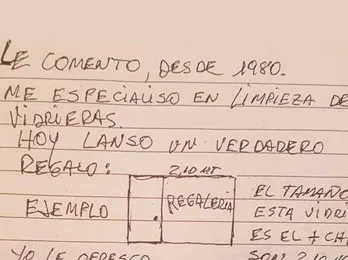 LE COMENTO, DESDE 1980.
ME ESPECIALISO EN LIMPIEZA DE
VIDRIERAS.
HOY LANSO UN VERDADERO
REGALO:
2,10 MT
EJEMPLO
REGALERIA
EL TAMAÑO
ESTA VIDRI
ES EL + CH
YO LE OFRESCO
SON 2,10